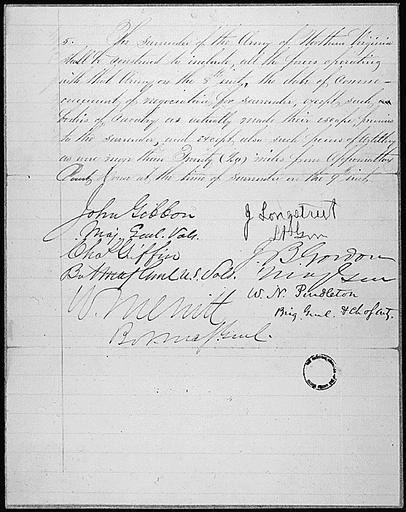 5. The surrender of the Army of Northern Virginia
shall be construed to include all the forces operating
with that Army on the 8th inst, the date of commen-
cement of negociation for surrender, except such
bodies of Cavalry as actually made their escape previous
to the surrender, and except, also such pieces of Artillery
as were more than Twenty (20) miles from Appomattox
Court House at the time of surrender on the 9th inst.
John Gibbon
Maj. Genl. Vols.
Chas Griffin
Bvt Maj Genl U.S. Vols.
W. Merritt
Bvt Maj Genl.
J Longstreet
Lt Gen
J B Gordon
Maj Gen
W. N. Pendleton
Brig. Genl. & Ch of Arty.